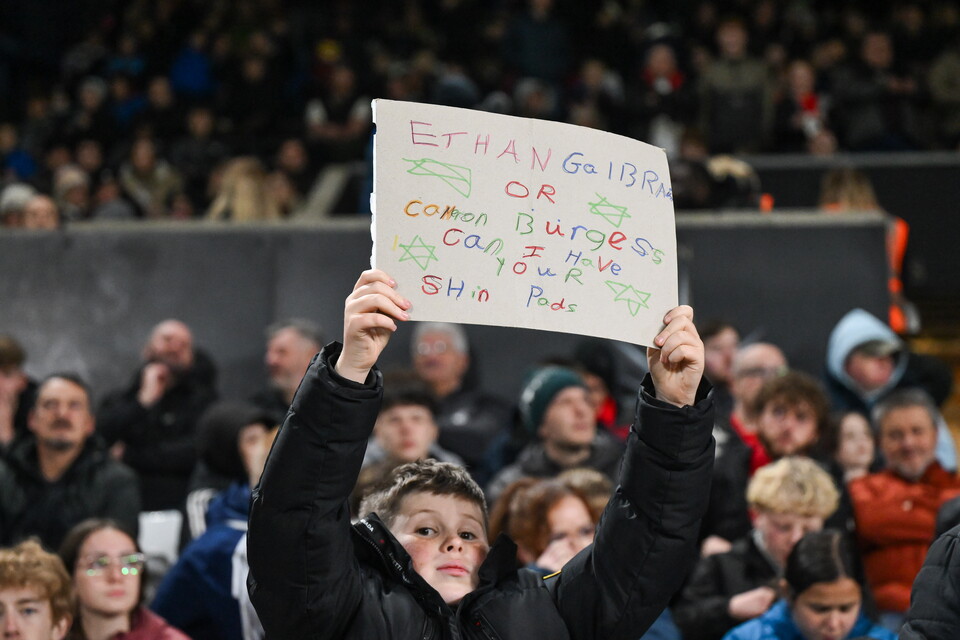 ETHAN GalBRAi
OR
Camron Burgess
Can I Have
YOUR
SHin Pads